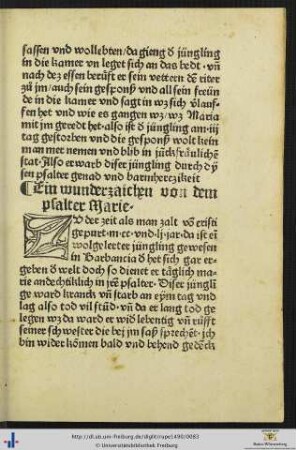 sassen vnd wollebten/da gieng d̕ jüngling
in die kamer vn̄ leget sich an das bedt · vn̄
nach dez essen berüft er sein vettern dē riter
zů jm/auch sein gesponß vnd all sein freün
de in die kamer vnd sagt in wz sich v̕lauf-
fen het vnd wie es gangen wz/wz Maria
mit jm geredt het · also ist d̕ jüngling am · iij
tag gestorben vnd die gesponß wolt kein
man mer nemen vnd blib in jückfraulichē
stat · Also erwarb diser jüngling durch dysen psalter genad vnd barmherczikeit
¶ Ein wunderzaichen von dem
psalter Marie ·
Zv der zeit als man zalt vō cristi
gepurt · m · cc · vnd · lj · jar da ist eī
wolgelerter jüngling gewesen
in Barbancia d̕ het sich gar er-
geben d̕ welt doch so dienet er täglich ma-
rie andechtiklich in jrē psalter · Diser jüngli
ge ward kranck vn̄ starb an eym tag vnd
lag also tod vil stūd · vn̄ da er lang tod ge
legen wz da ward er wid̕ lebentig vn̄ rüfft
seiner schwester die bej jm saß sprechēt · jch
bin wider kömen bald vnd behend gedēck
http://dl.ub.uni-freiburg.de/diglit/rupe1490/0083
© Universitätsbibliothek Freiburg
Baden-Württemberg